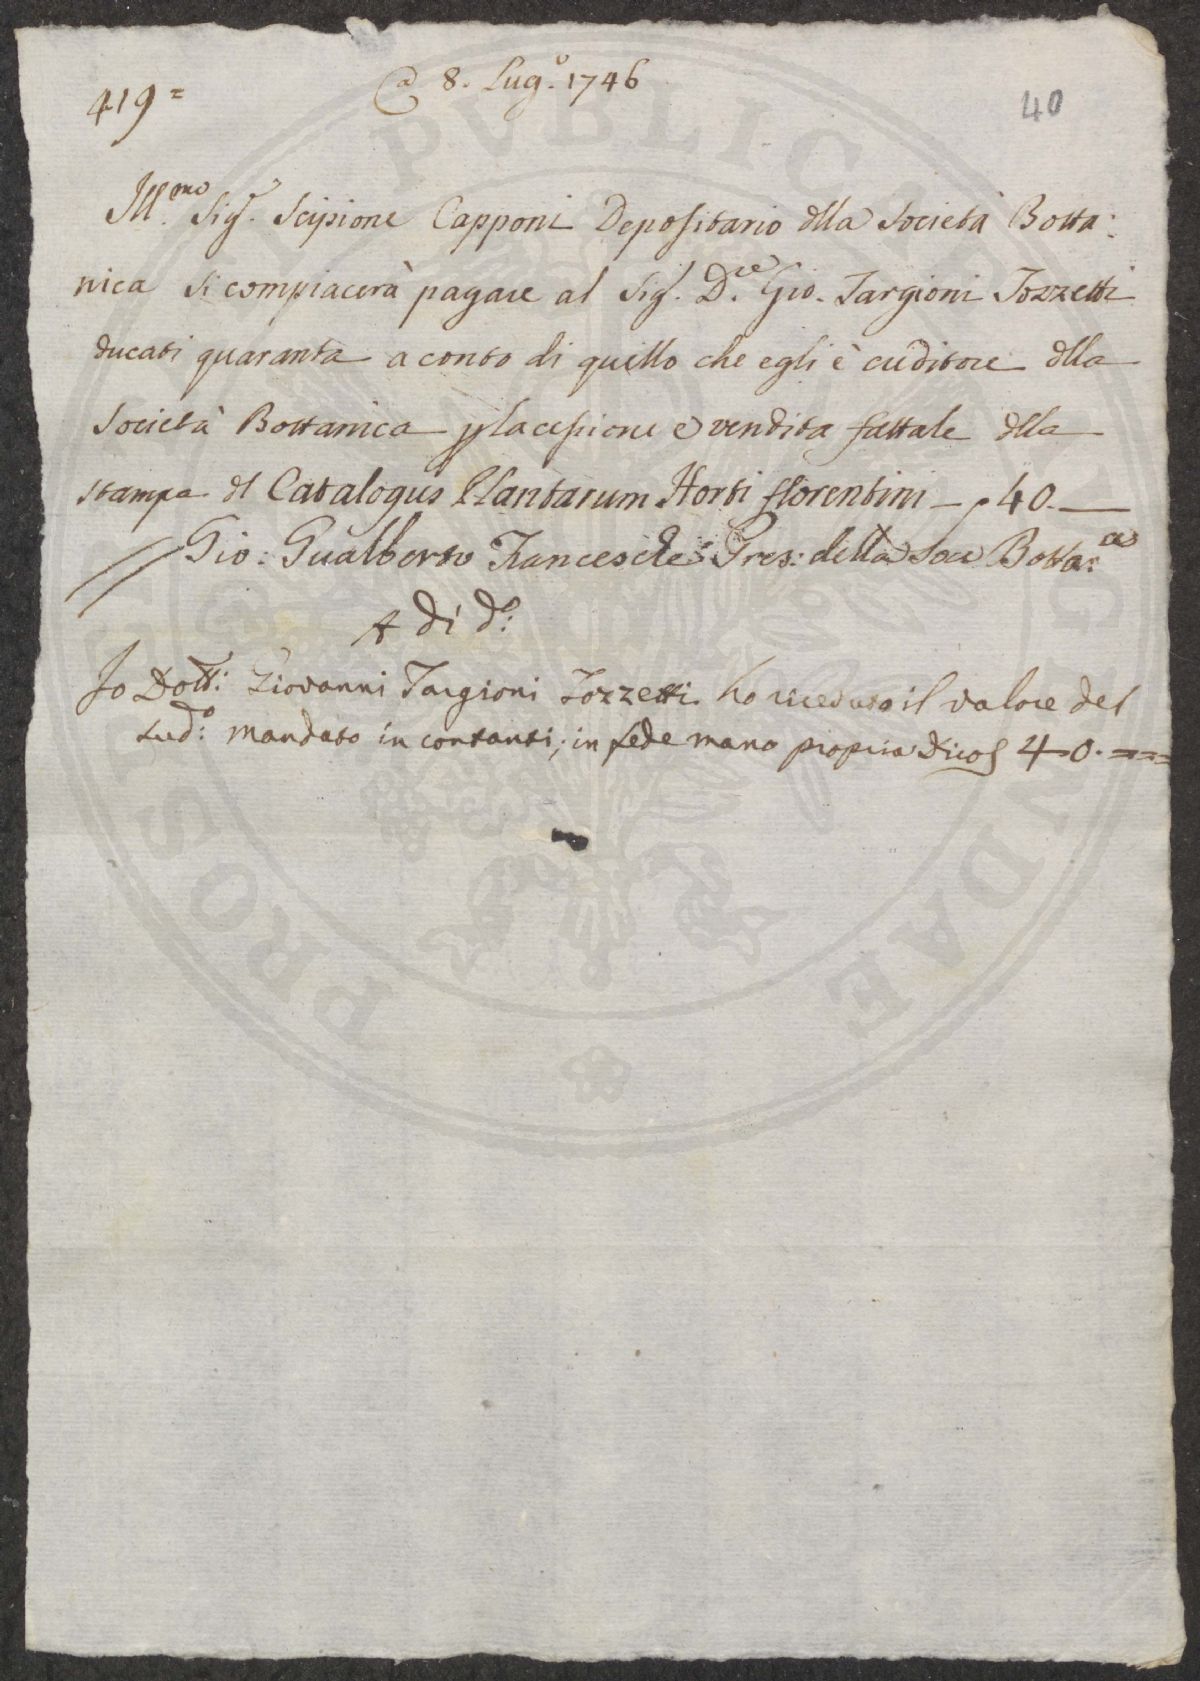 419=
@ 8. Lug.º 1746
40
Ill.mo Sig.r Scipione Capponi Depositario dlla Società Botta:
nica si compiacerà pagare al Sig.r D.re Gio. Targioni Tozzetti
ducati quaranta a conto di quello che egli è creditore dlla
Società Bottanica p la cessione e vendita fattale dlla
stampa dl Catalogus Plantarum Horti florentini — 40. —
Gio: Gualberto Franceschi Pres: della Soc Botta:ca
A dì d.º:
Io Dott: Giovanni Targioni Tozzetti ho riceuto il valore del
sud:º mandato in contanti, in fede mano propria Dico 40. ==
PVBLICAE
COMMODAE
PROSP